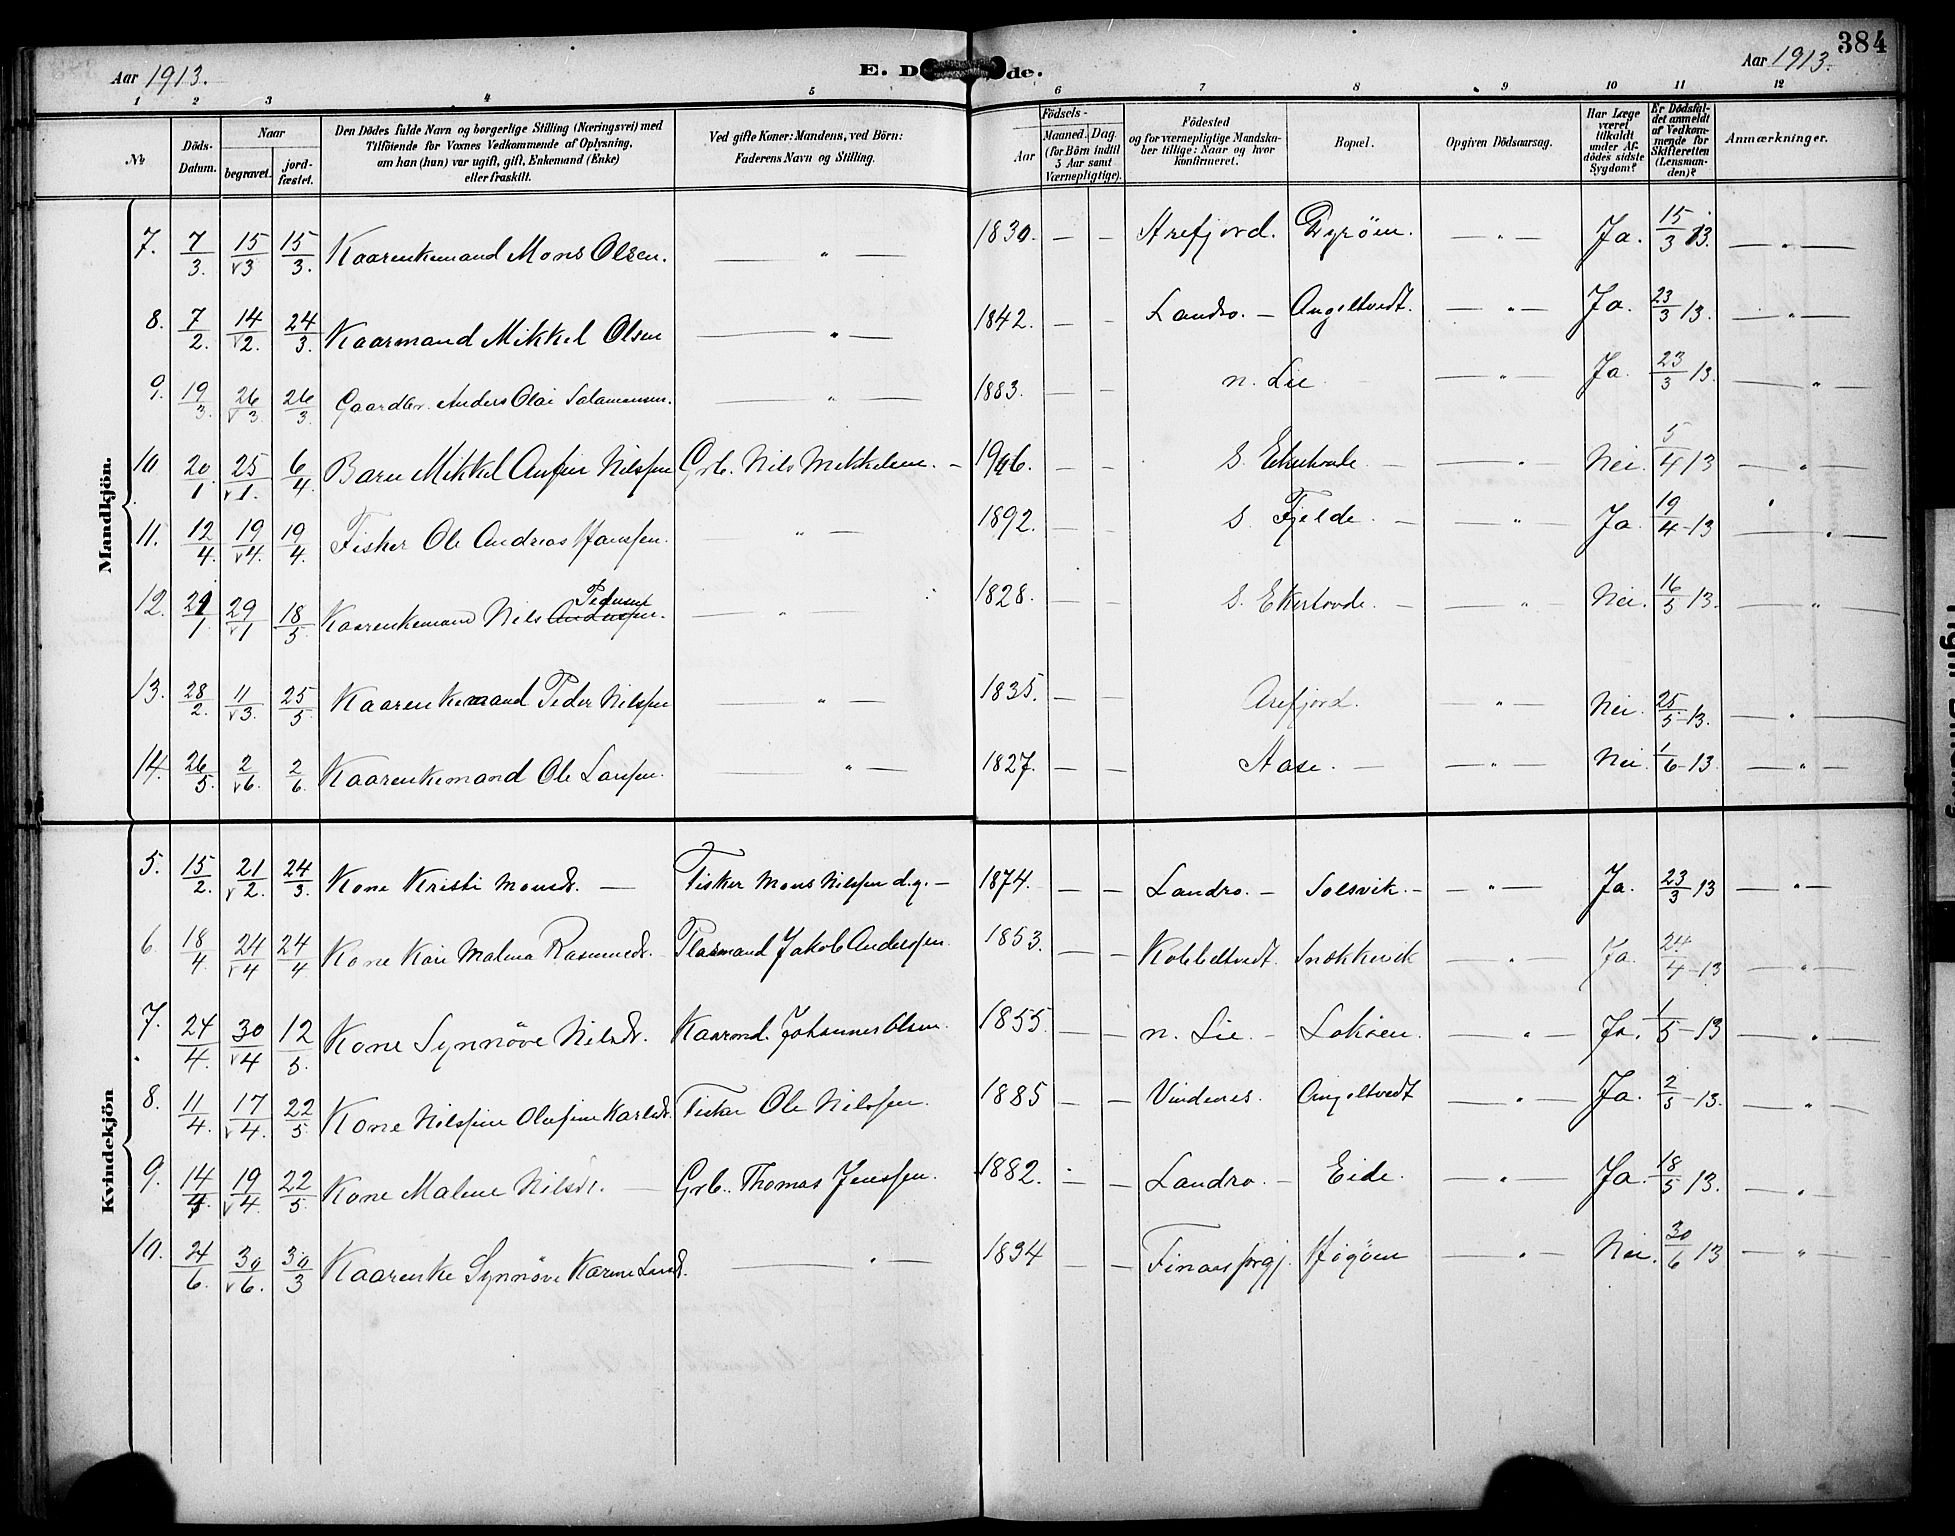 384
Aar 1913.
E. D de.
Aar 1913.
1 2 3 4 5 6 7 8 9 10 11 12
No
Döds-Datum.
Naar
begravet.
jord-fæstet.
Den Dödes fulde Navn og borgerlige Stilling (Næringsvei) med
Tilföiende for Voxnes Vedkommende af Oplysning,
om han (hun) var ugift, gift, Enkemand (Enke)
eller fraskilt.
Ved gifte Koner: Mandens, ved Börn:
Faderens Navn og Stilling.
Födsels-
Aar
Maaned.
Dag.
(for Börn indtil
5 Aar samt
Værnepligtige).
Födested
og for værnepligtige Mandska-
ber tillige: Naar og hvor
konfirmeret.
Bopæl.
Opgiven Dödsaarsag.
Har Læge
været
tilkaldt
under Af-
dödes sidste
Sygdom?
Er Dödsfal-
det anmeldt
af Vedkom-
mende for
Skifteretten
(Lensman-
den)?
Anmærkninger.
Mandkjön.
7. 7/3. 15/3 15/3. Kaarenkemand Mons Olsen. — " — 1830. — — Arefjord. Dyröen. — " — Ja. 15/3 13. — " —
8. 7/2. 14/2. 24/3. Kaarmand Mikkel Olsen — " — 1842. — — Landro. — Angeltvedt. — " — Ja. 23/3 13. — " —
9. 19/3. 26/3 26/3 Gaardbr. Anders Olai Salamonsen. — " — 1883. — — n. Lie — " — Ja. 23/3 13. — "
10 20/1 25/1. 6/4. Barn Mikkel Anfin Nilssen Grb. Nils Mikkelsen. — 1906. — — S. Ekerhovde — " Nei. 5/4 13 — " —
11. 12/4. 19/4. 19/4. Fisker Ole Andreas Hanssen. — " — 1892. — — S. Fjelde. — — " Ja. 19/4 - 13 — " —
12. 21/1 29/1 18/5 Kaarenkemand Nils Pedersen — " — 1828. — — S. Ekerhovde. — — " — Nei. 16/5 13. — " —
13. 28/2. 11/3. 25/5. Kaarenkemand Peder Nilssen — " — 1835. — — Arefjord. — " — Nei. 25/5 - 13. — " —
14. 26/5. 2/6. 2/6. Kaarenkemand Ole Larssen. — " — 1827. — — Aase. — — " — Nei. 1/6 - 13. — " —
Kvindekjön
5. 15/2. 21/2. 24/3. Kone Kristi Monsdr. — Fisker Mons Nilssen d.y. — 1874. — — Landro. — Solsvik. — — " — Ja. 23/3 13 — " —
6. 18/4. 24/4 24/4 Kone Kari Malena Rasmusdr. — Plasmand Jakob Anderssen. 1853. — — Kobbeltvedt. Snekkevik — " — Ja. 24/4 - 13 — " —
7. 24/4. 30/4 12/5 Kone Synnöve Nilsdr. Kaarmd. Johannes Olsen. 1855. — — n. Lie. — Loköen. — " — Ja. 1/5 - 13 — " —
8. 11/4. 17/4. 22/5 Kone Nilssine Olufine Karlsdr. Fisker Ole Nilssen. 1885 — — Vindenes. Angeltvedt — " — Ja. 2/5 - 13. — " —
9. 14/4. 19/4. 22/5 Kone Malene Nilsdr. — Grb. Thomas Jenssen. 1882. — — Landro. — Eide. — " — Ja. 18/5 13. — " —
10. 24/6. 30/6. 30/3 Kaarenke Synnöve Karine — " — 1834 — — Högöen — " — Nei. 30/6 13 — " —